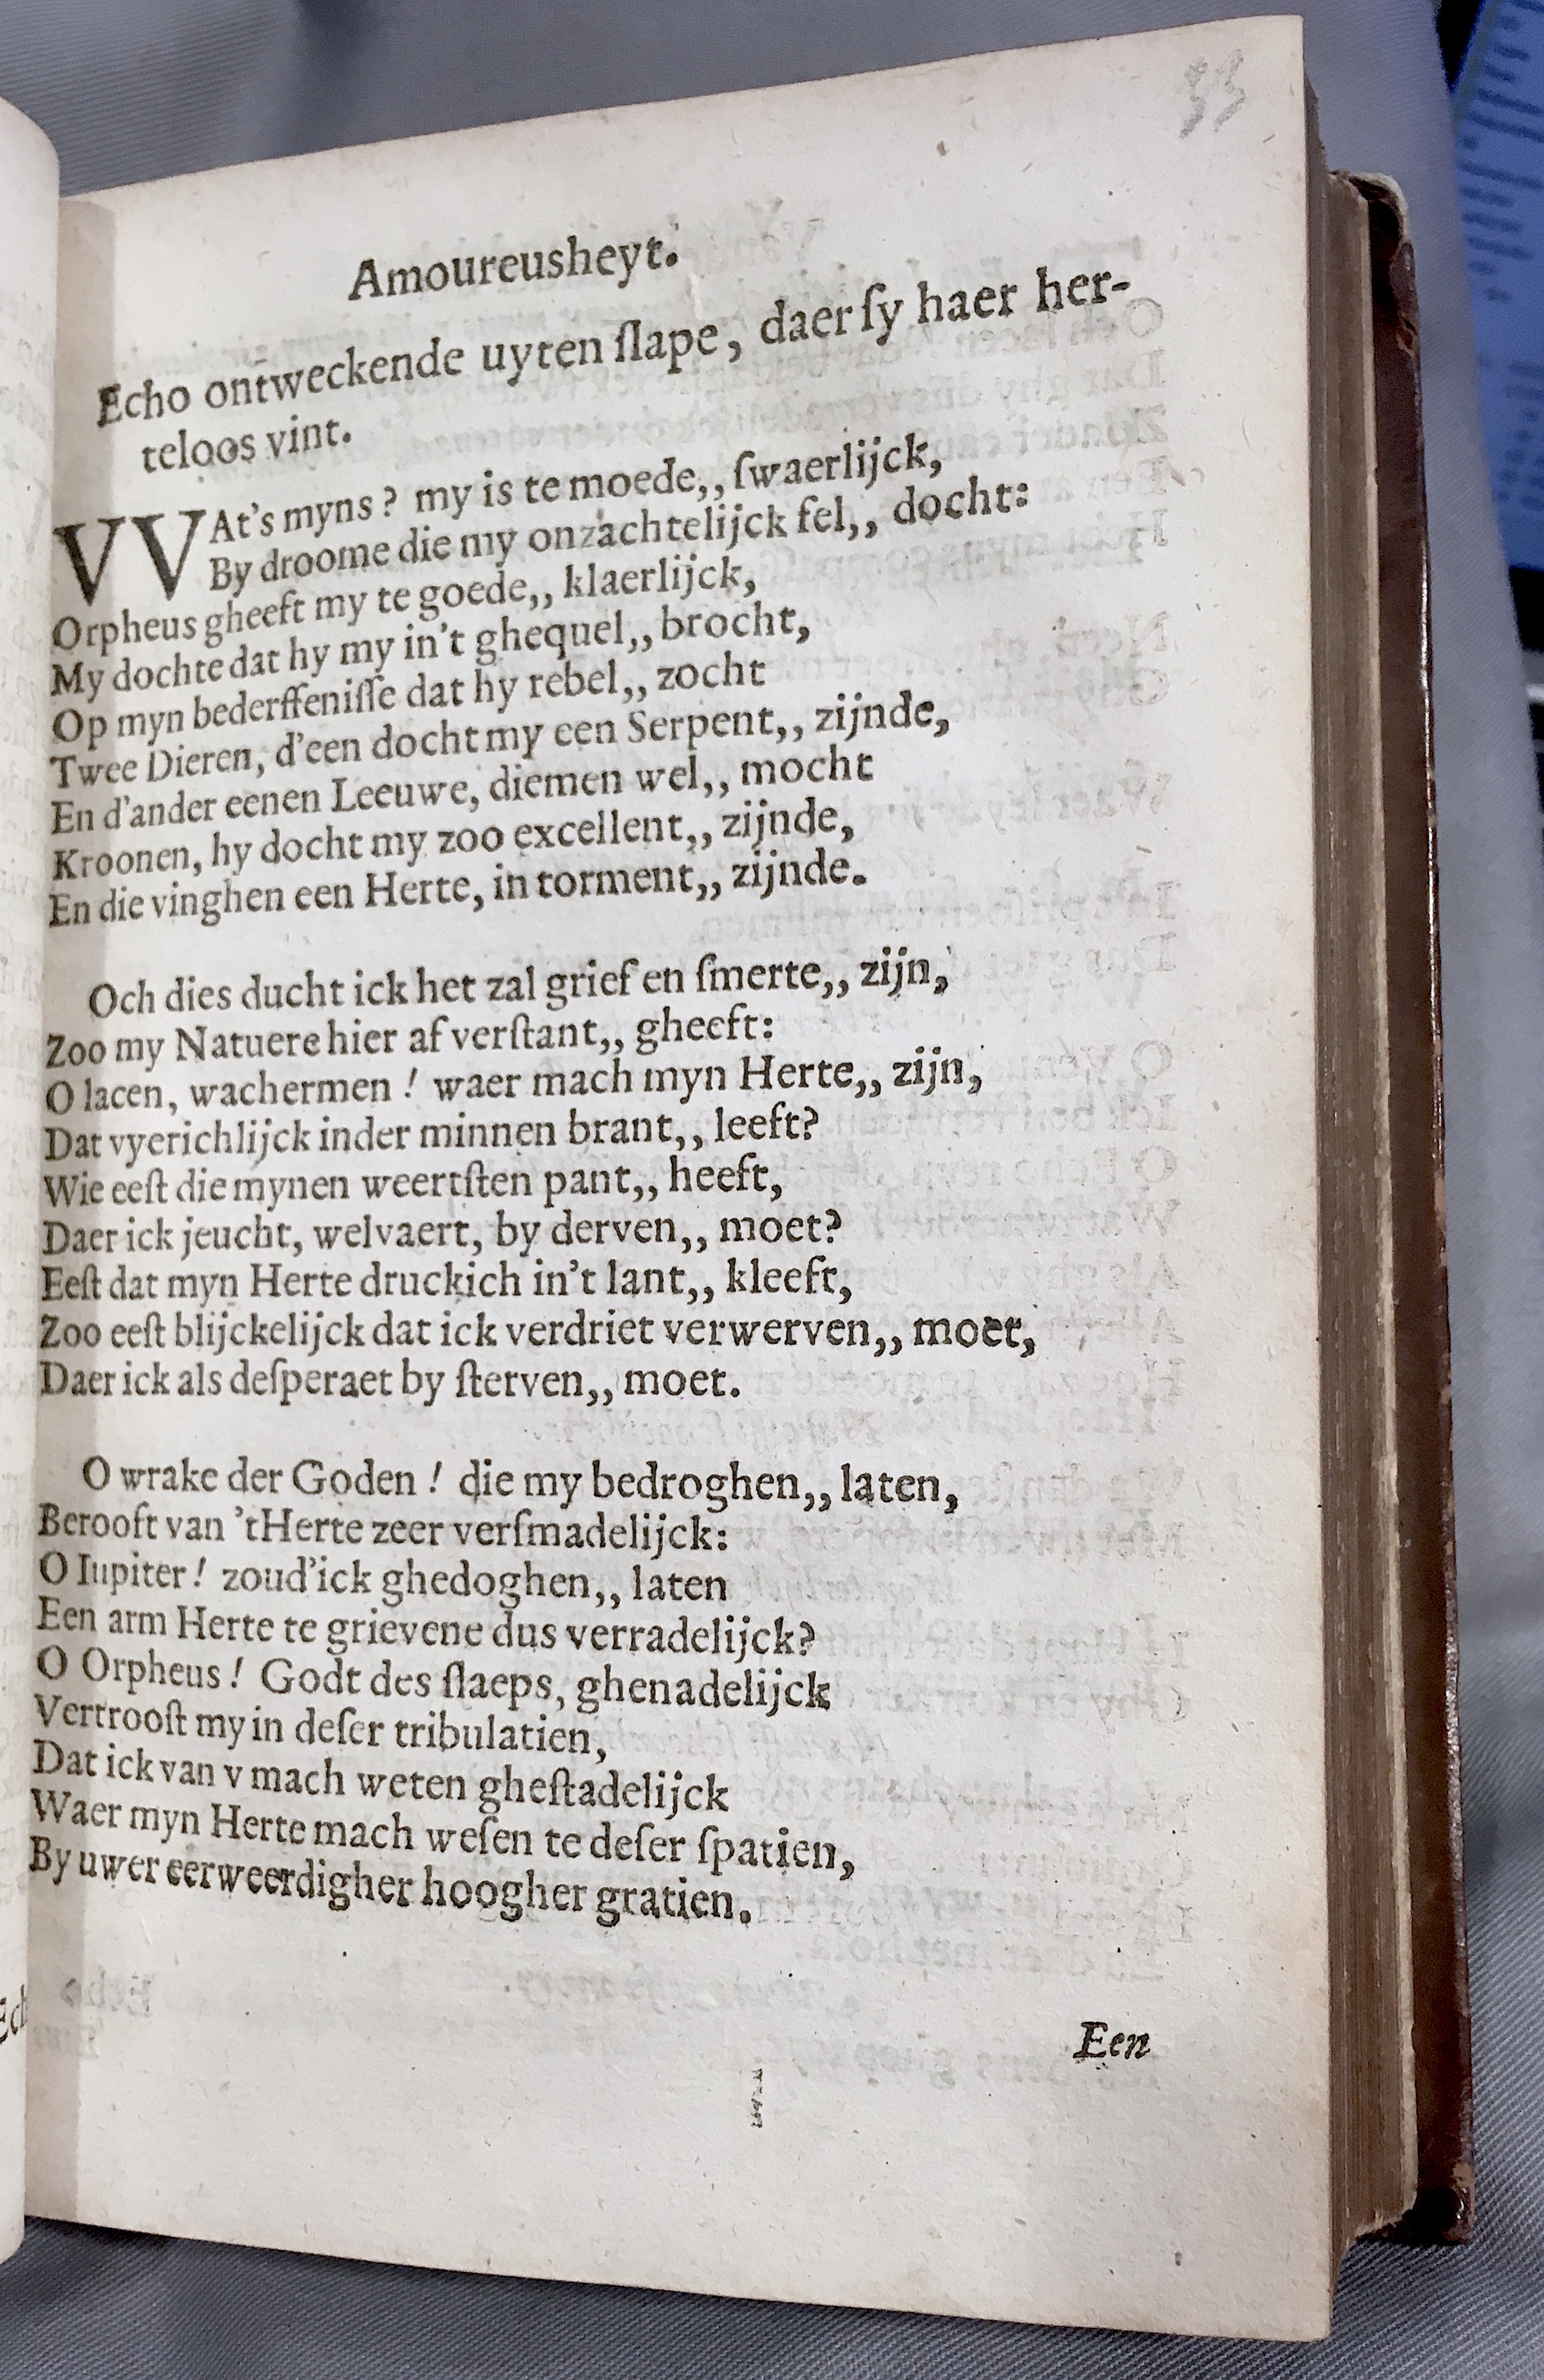 33
Amoureusheyt.
Echo ontweckende uyten ſlape, daer ſy haer her-
teloos vint.
VVAt's myns? my is te moede,, ſwaerlijck,
By droome die my onzachtelijck fel,, docht:
Orpheus gheeft my te goede,, klaerlijck,
My dochte dat hy my in't ghequel,, brocht,
Op myn bederffeniſſe dat hy rebel,, zocht
Twee Dieren, d'een docht my een Serpent,, zijnde,
En d'ander eenen Leeuwe, diemen wel,, mocht
Kroonen, hy docht my zoo excellent,, zijnde,
En die vinghen een Herte, in torment,, zijnde.
Och dies ducht ick het zal grief en ſmerte,, zijn,
Zoo my Natuere hier af verſtant,, gheeft:
O lacen, wachermen! waer mach myn Herte,, zijn,
Dat vyerichlijck inder minnen brant,, leeft?
Wie eeſt die mynen weertſten pant,, heeft,
Daer ick jeucht, welvaert, by derven,, moet?
Eeſt dat myn Herte druckich in't lant,, kleeft,
Zoo eeſt blijckelijck dat ick verdriet verwerven,, moet,
Daer ick als deſperaet by ſterven,, moet.
O wrake der Goden! die my bedroghen,, laten,
Berooft van 'tHerte zeer verſmadelijck:
O Iupiter! zoud'ick ghedoghen,, laten
Een arm Herte te grievene dus verradelijck?
O Orpheus! Godt des ſlaeps, ghenadelijck
Vertrooſt my in deſer tribulatien,
Dat ick van v mach weten gheſtadelijck
Waer myn Herte mach weſen te deſer ſpatien,
By uwer eerweerdigher hoogher gratien.
Een